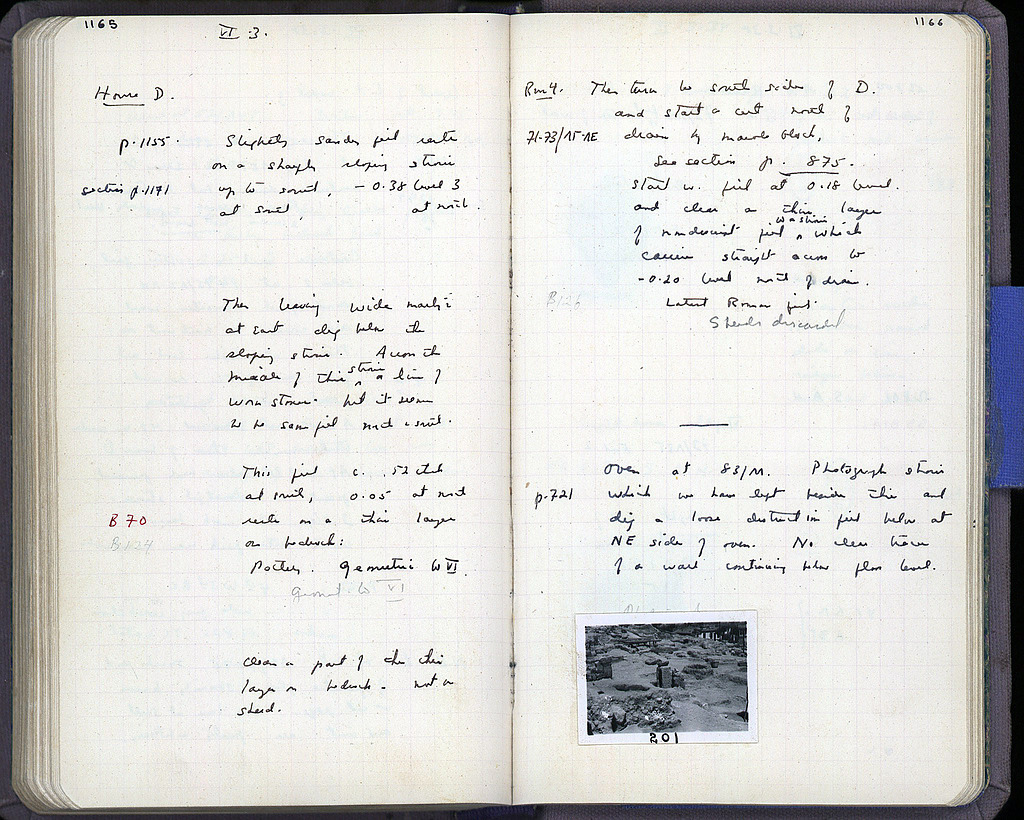 1165
VI 3.
House D.
p. 1155. Slightly sandy fill rests
on a sharply sloping strosis
section p. 1171 up to south, -0.38 level 3
at south, at north.
Then leaving wide
at East dig below the
sloping strosis. Across the
middle of this strosis a line of
worn stones. but it seems
to be same fill north & south.
This fill c. .52
at south, 0.05 at north
B 70 rests on a thin layer
B 124 on bedrock:
Pottery. Geometric to VI.
Geomet. to VI
Clean a part of the thin
layer on bedrock. not a
sherd.
1166
Rm 4. Then turn to south side of D.
and start a cut north of
71-73/15-ΛΕ drain by marble block,
see section p. 875.
start w. fill at 0.18 level.
and clear a thin layer
of nondescript fill w. strosis which
carries straight across to
-0.20 level north of drain.
B 126 Latest Roman fill.
Sherds discarded
Oven at 83/Μ. Photograph strosis
p. 721 which we have kept beside this and
dig a loose destruction fill below at
NE side of oven. No clear trace
of a wall continuing below floor level.
201